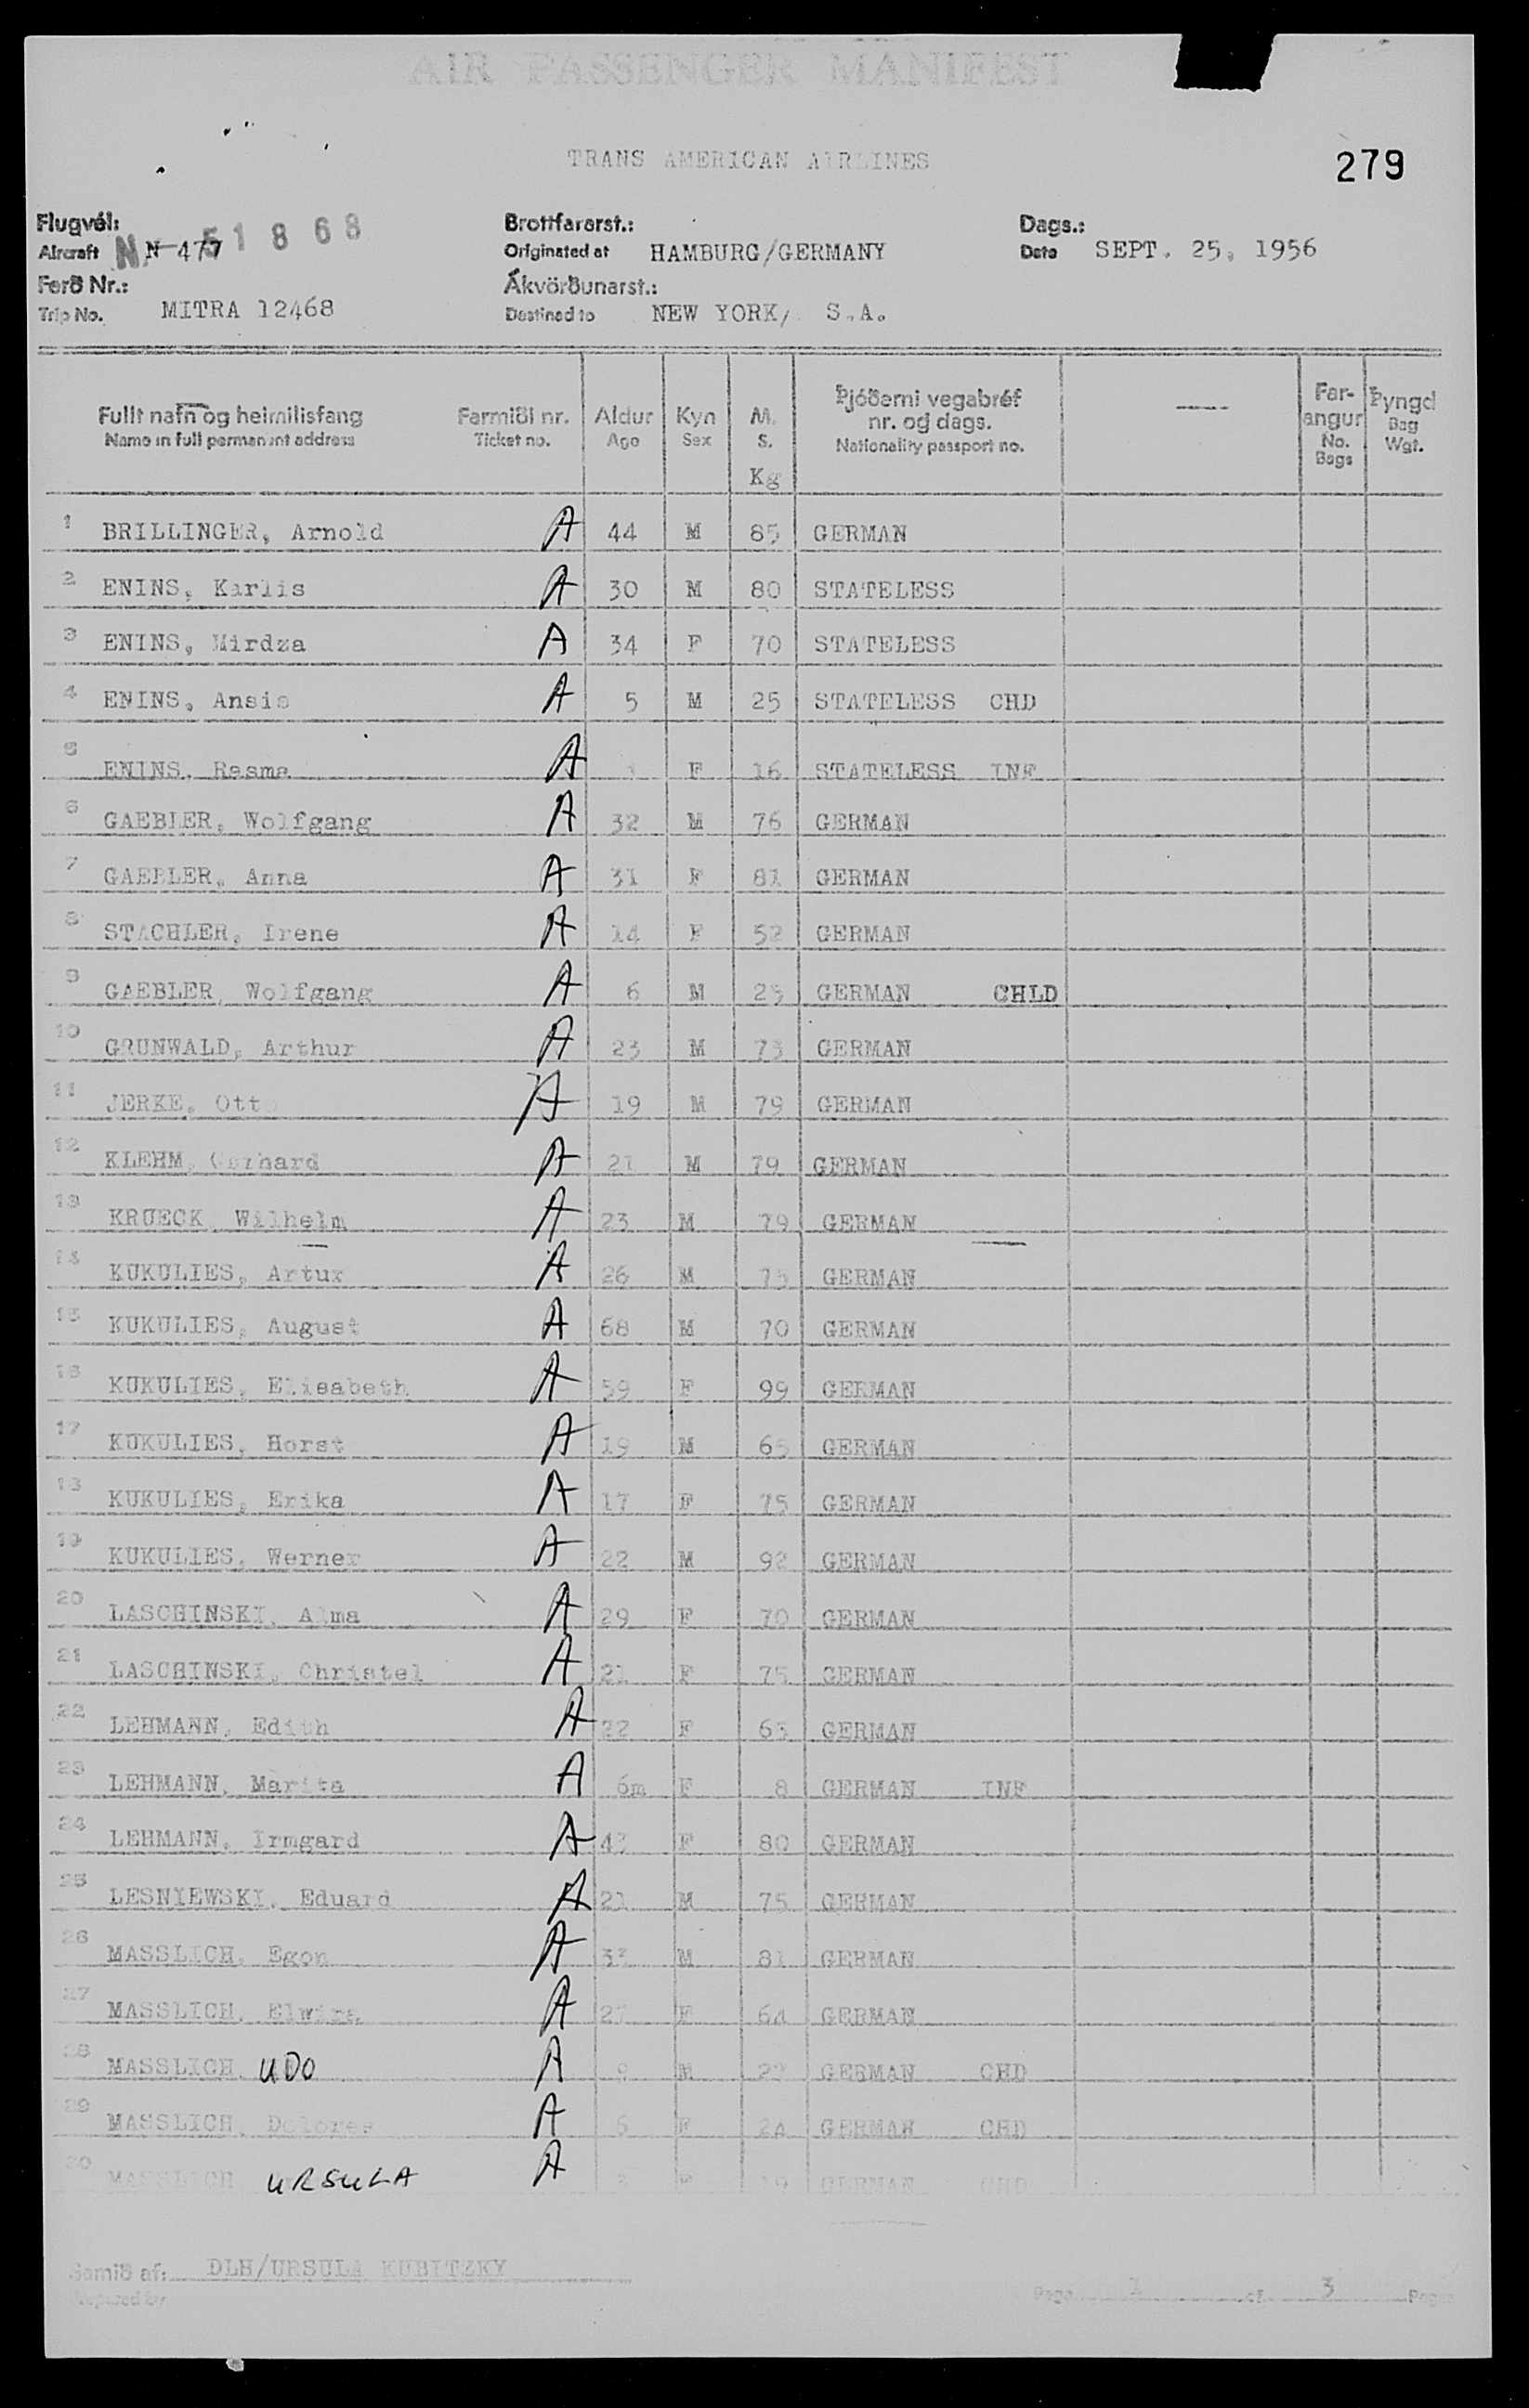 AIR PASSENGER MANIFEST
TRANS AMERICAN AIRLINES
279
Flugvél: Brottfararst.: Dags.:
Aircraft N N-477 51868 Originated at HAMBURG/GERMANY Date SEPT. 25, 1956
Ferð Nr.: Ákvörðunarst.:
Trip No. MITRA 12468 Destined to NEW YORK, S.A.
Fullt nafn og heimilisfang Farmiði nr. Aldur Kyn M. Þjóðerni vegabréf nr. og dags. Farangur Þyngd
Name in full permanent address Ticket no. Age Sex S. Kg Nationality passport no. No. Bags Bag Wgt.
1 BRILLINGER, Arnold A 44 M 85 GERMAN
2 ENINS, Karlis A 30 M 80 STATELESS
3 ENINS, Mirdza A 34 F 70 STATELESS
4 ENINS, Ansis A 5 M 25 STATELESS CHD
5 ENINS, Rasma A F 16 STATELESS INF
6 GAEBLER, Wolfgang A 32 M 76 GERMAN
7 GAEBLER, Anna A 31 F 81 GERMAN
8 STACHLER, Irene A 14 F 52 GERMAN
9 GAEBLER, Wolfgang A 6 M 23 GERMAN CHLD
10 GRUNWALD, Arthur A 23 M 73 GERMAN
11 JERKE, Otto A 19 M 79 GERMAN
12 KLEHM, Gerhard A 21 M 79 GERMAN
13 KRUECK, Wilhelm A 23 M 79 GERMAN
14 KUKULIES, Artur A 26 M 75 GERMAN
15 KUKULIES, August A 68 M 70 GERMAN
16 KUKULIES, Elisabeth A 59 F 99 GERMAN
17 KUKULIES, Horst A 19 M 65 GERMAN
18 KUKULIES, Erika A 17 F 75 GERMAN
19 KUKULIES, Werner A 22 M 92 GERMAN
20 LASCHINSKI, Alma A 29 F 70 GERMAN
21 LASCHINSKI, Christel A 21 F 75 GERMAN
22 LEHMANN, Edith A 22 F 63 GERMAN
23 LEHMANN, Marita A 6m F 8 GERMAN INF
24 LEHMANN, Irmgard A 43 F 80 GERMAN
25 LESNIEWSKI, Eduard A 21 M 75 GERMAN
26 MASSLICH, Egon A M 81 GERMAN
27 MASSLICH, Elwira A 27 F 64 GERMAN
28 MASSLICH, UDO A M GERMAN CHD
29 MASSLICH, Dolores A 6 F 24 GERMAN CHD
30 MASSLICH URSULA A F 19 GERMAN CHD
Samið af: DLH/URSULA KUBITZKY
Prepared by Page 1 of 3 Pages